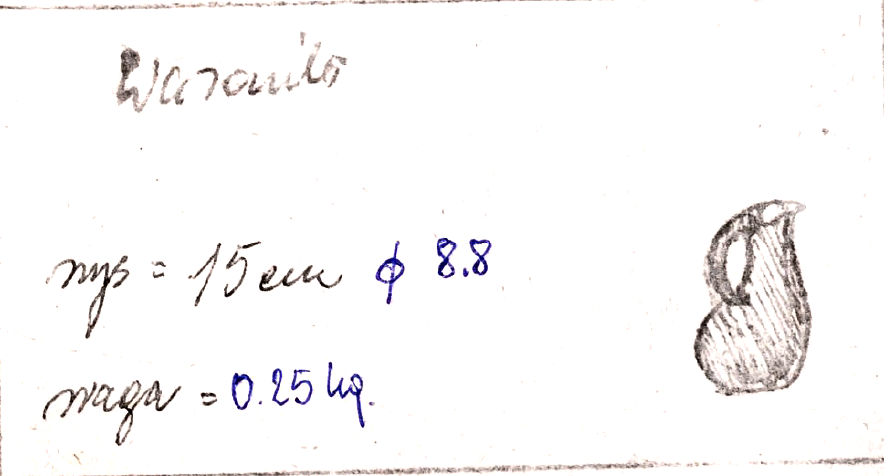 Wazonik
wys = 15 cm ϕ 8.8
waga = 0.25 kg.